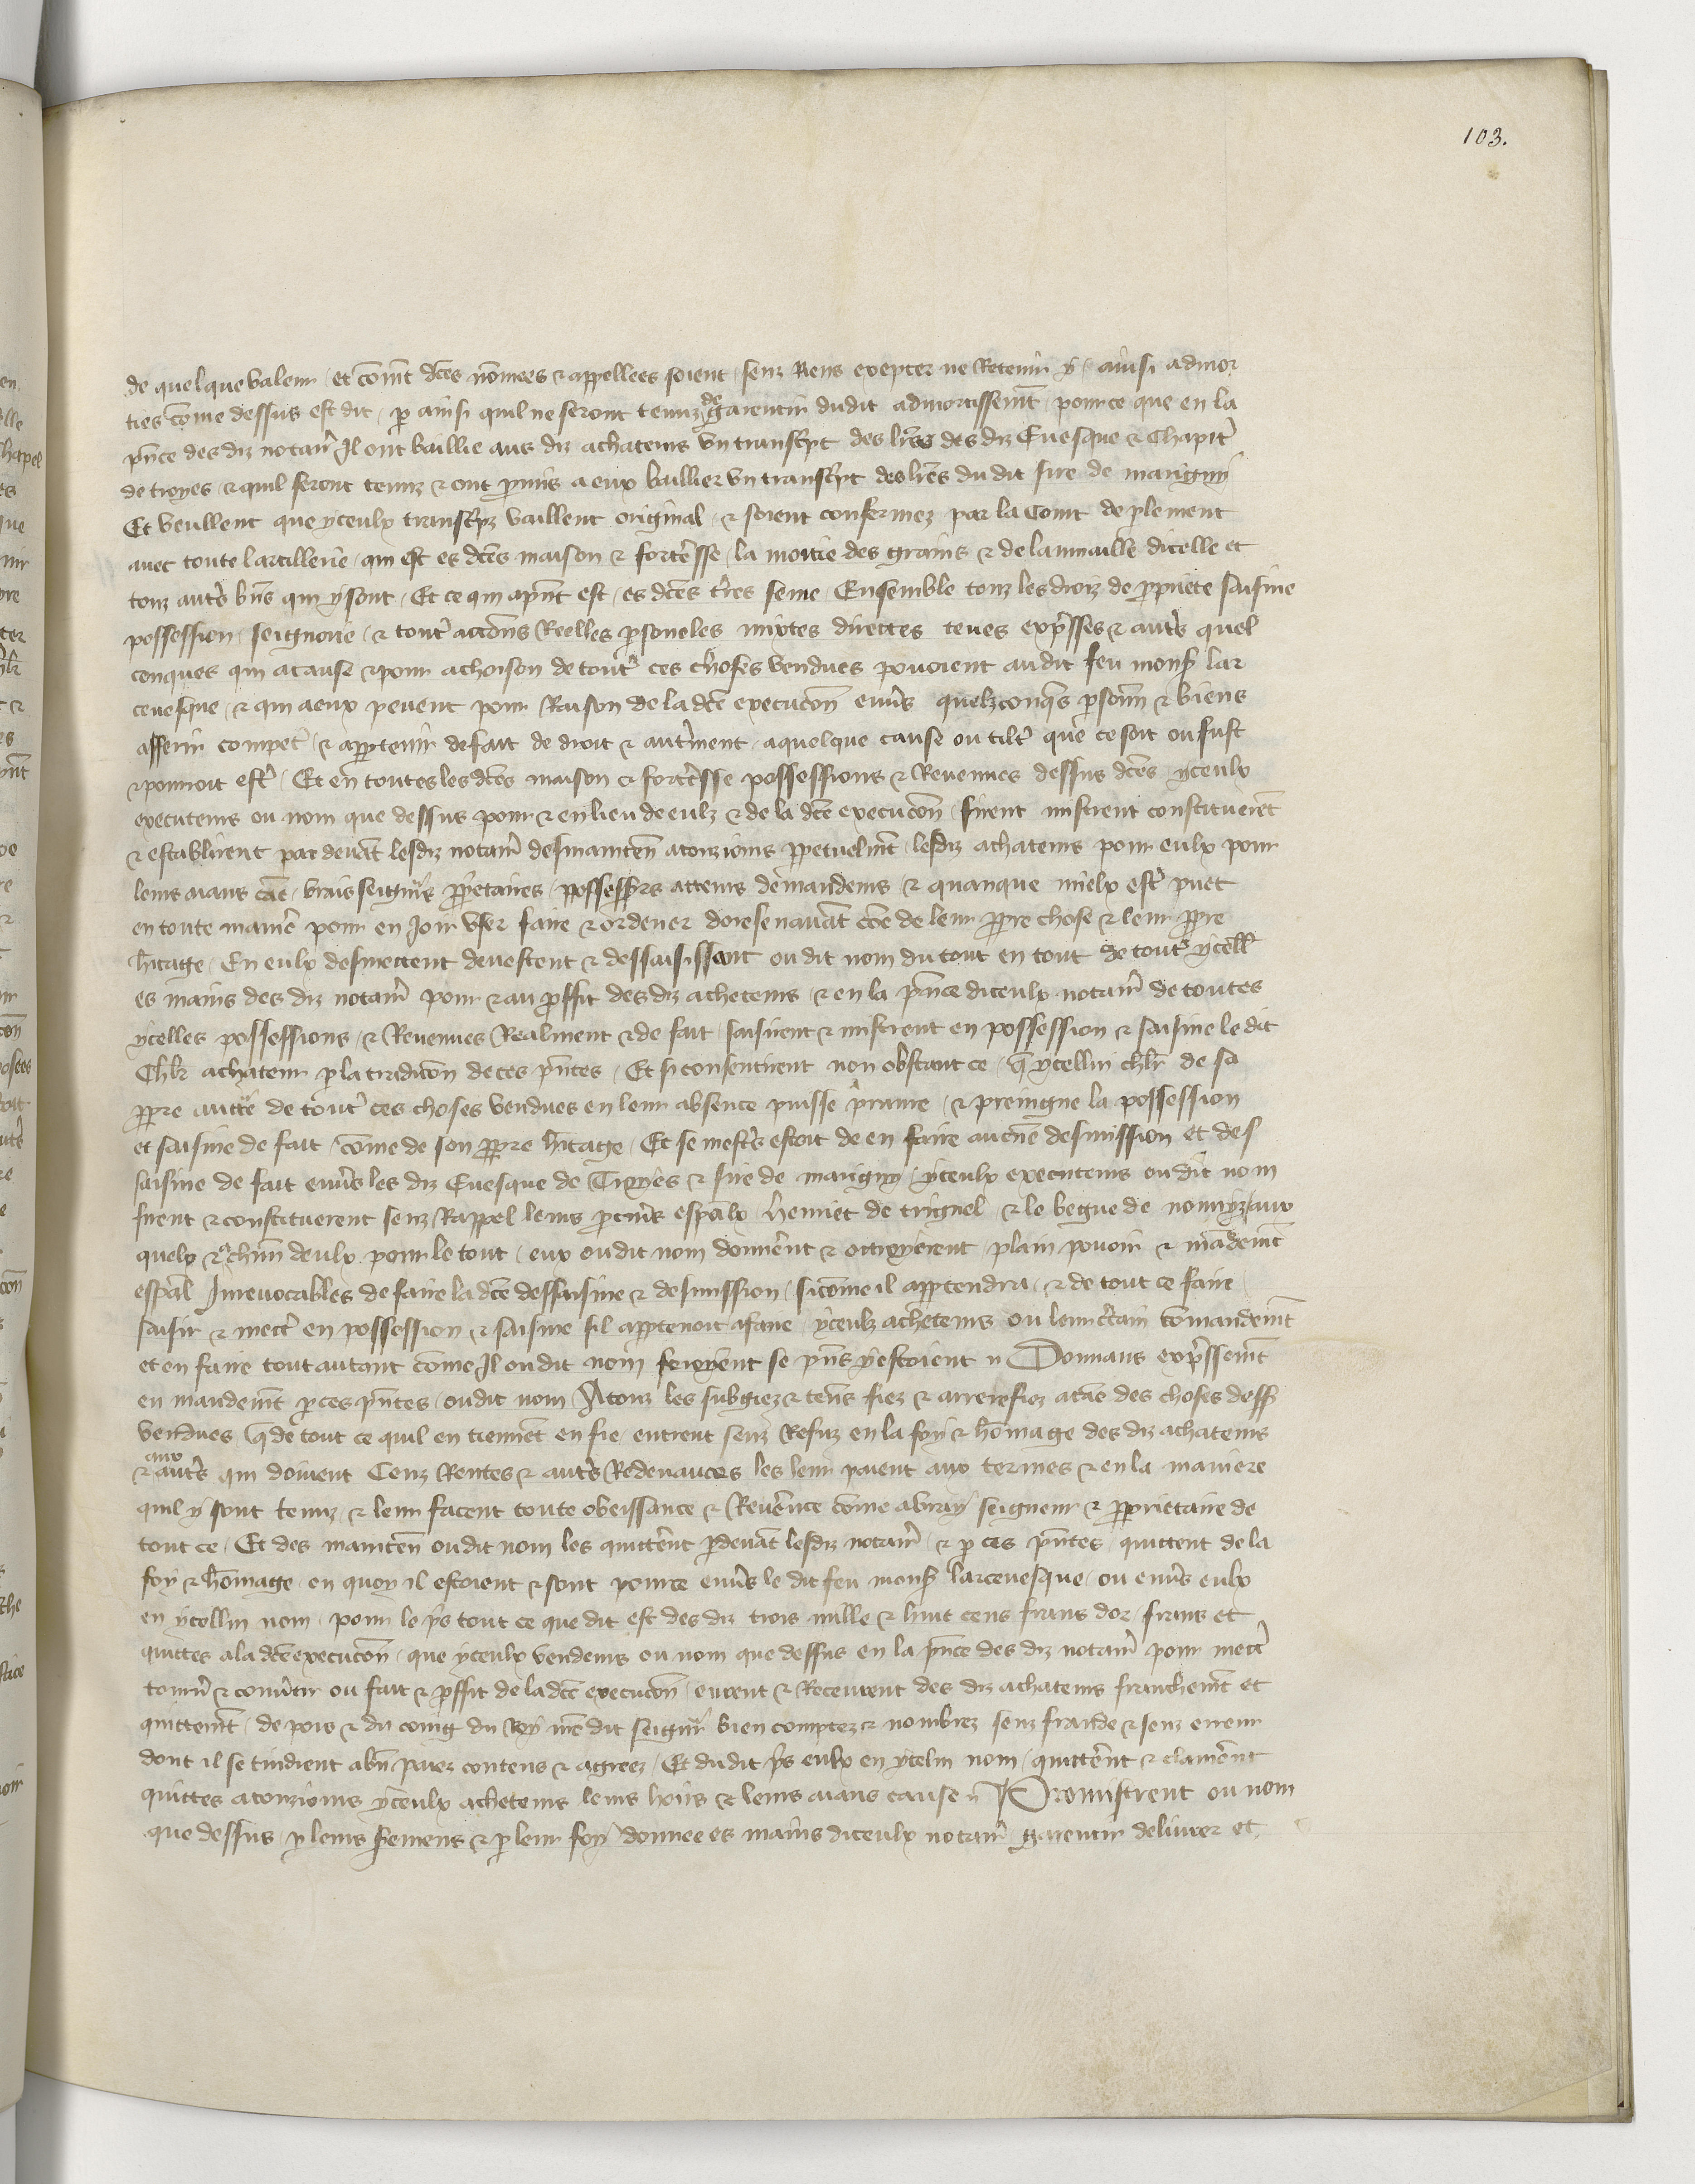 103.
de quelque valeur et com̄t dc̄es nōmees & appellees soient senz Riens excepter ne Retenir y ainsi admor
ties cōme dessus est dit p ainsi quil ne seront tenuz de garentir dudit admortissem̄t pource que en la
p̄nce des diz notaır̄ Il ont baillie aus diz achateurs vn transcp̄t des lr̄es des diz Euesque & Chapit̄
de troyes & quil seront tenuz & ont p̄mis a eux baillier vn transcp̄t des lr̄es du dit sire de marigny
Et veullent que yceulx transcp̄z vaillent original & soient confermez par la Court de plement
auec toute lartillerie qui est es dc̄es maison & fort̄esse la moitie des grains & de laumaille dicelle et
touz aut̄s bn̄s qui y sont Et ce qui ap̄nt est es dc̄es t̄res seme Ensemble touz les droiz de p̄priete saisine
possession seignorie & tout̄ accōns Reelles p̄soneles mixtes directes teues exp̄sses & aut̄s quel
conques qui a cause & pour achoison de tout̄ ces choses vendues pouoient au dit feu mons̄ lar
ceuesque & qui a eux peuent pour Raison de la dc̄e execucōn enūs quelzconq̄s p̄sonn̄ & biens
afferir compet̄ & app̄tenir de fait de droit & aut̄ment a quelque cause ou tilt̄ que ce soit ou fust
& pourroit est̄ Et en toutes les dc̄es maison & fort̄esse possessions & Reuenues dessus dc̄es yceulx
executeurs ou nom que dessus pour & en lieu de eulz & de la dc̄e execucōn firent mistrent constituerēt
& establirent par deuāt lesdiz notaır̄ desmaintēn a touziours pp̄etuelm̄t lesdiz achateurs pour eulx pour
leurs aians cāe vrais seignr̄s pp̄etaires possessr̄s atteurs demandeurs & quanque mielx est̄ puet
en toute manie᷑ pour en Joir vser faire & ordener doresenauāt cōe de leur pp̄re chose & leur pp̄re
hītage En eulx desmettent deuestent & dessaisissant ou dit nom du tout en tout de tout̄ ycell̄
es mains des diz notaır̄ pour & au p̄ffit des diz acheteurs & en la p̄nce diceulx notaır̄ de toutes
ycelles possessions & Reuenues Realment & de fait saisirent & mistrent en possession & saisine le dit
Chlr̄ achateur p la tradicōn de ces p̄ntes Et si consentirent non obstant ce q̄ ycellui chlr̄ de sa
pp̄re auctē de tout̄ ces choses vendues en leur absence puisse p̄nre & preingne la possession
et saisine de fait cōme de son pp̄re hītage Et se mest̄s estoit de en faire aucūne desmission et des
saisine de fait enūs les diz Euesque de Troyes & sire de marigny yceulx executeurs ou dit nom
firent & constituerent senz Rappel leurs p̄cur̄s esp̄alx henriet de trignel & le begue de aux
quelx & chūn deulx pour le tout eux ou dit nom donn̄ent & ottroyerent plain pouoir & mādem̄t
esp̄al Irreuocables de faire la dc̄e dessaisine & desmission si cōme il app̄tendra & de tout ce faire
saisir & mect̄ en possession & saisine sil app̄tenoit a faire yceulz acheteurs ou leur c̄tain cōmandem̄t
et en faire tout autant cōme Il ou dit nom feroyent se p̄ns y estoient Donnans exp̄ssem̄t
en mandem̄t p ces p̄ntes ou dit nom A touz les subgiez & ten̄s fiez & arrerefiez a cāe des choses dess̄
vendues q̄ de tout ce quil en tiennēt en fie entrent senz Refuz en la foy & hōmage des diz achateurs
& aux aut̄s qui doiuent Cenz Rentes & aut̄s Redeuances les leur paient aux termes & en la maniere
quil y sont tenuz & leur facent toute obeissance & Reūence cōme a vray seigneur & pp̄rietaire de
tout ce Et des maintēn ou dit nom les quitt̄ent p̄deuāt lesdiz notaır̄ & p ces p̄ntes quittent de la
foy & hōmage en quoy il estoient & sont pource enūs le dit feu mons̄ larceuesque ou enūs eulx
en ycellui nom pour le p̄s tout ce que dit est des diz trois mille & huit cens frans dor frans et
quittes a la dc̄e execucōn que yceulx vendeurs ou nom que dessus en la p̄nce des diz notaır̄ pour mect̄
tourn̄ & conūtir ou fait & p̄ffit de la dc̄e execucōn eurent & Receurent des diz achateurs franchem̄t et
quittem̄t de pois & du coing du Roy nr̄e dit seignr̄ bien comptez & nombrez senz fraude & senz erreur
dont il se tindrent a bn̄ paiez contens & agreez Et dudit p̄s eulx en ycelui nom quitt̄ent & clam̄ent
quittes a touziours yceulx acheteurs leurs hoirs & leurs aians cause Promistrent ou nom
que dessus p leurs s̄remens & p leur foy donnee es mains diceulx notaır̄ garentir deliurer et